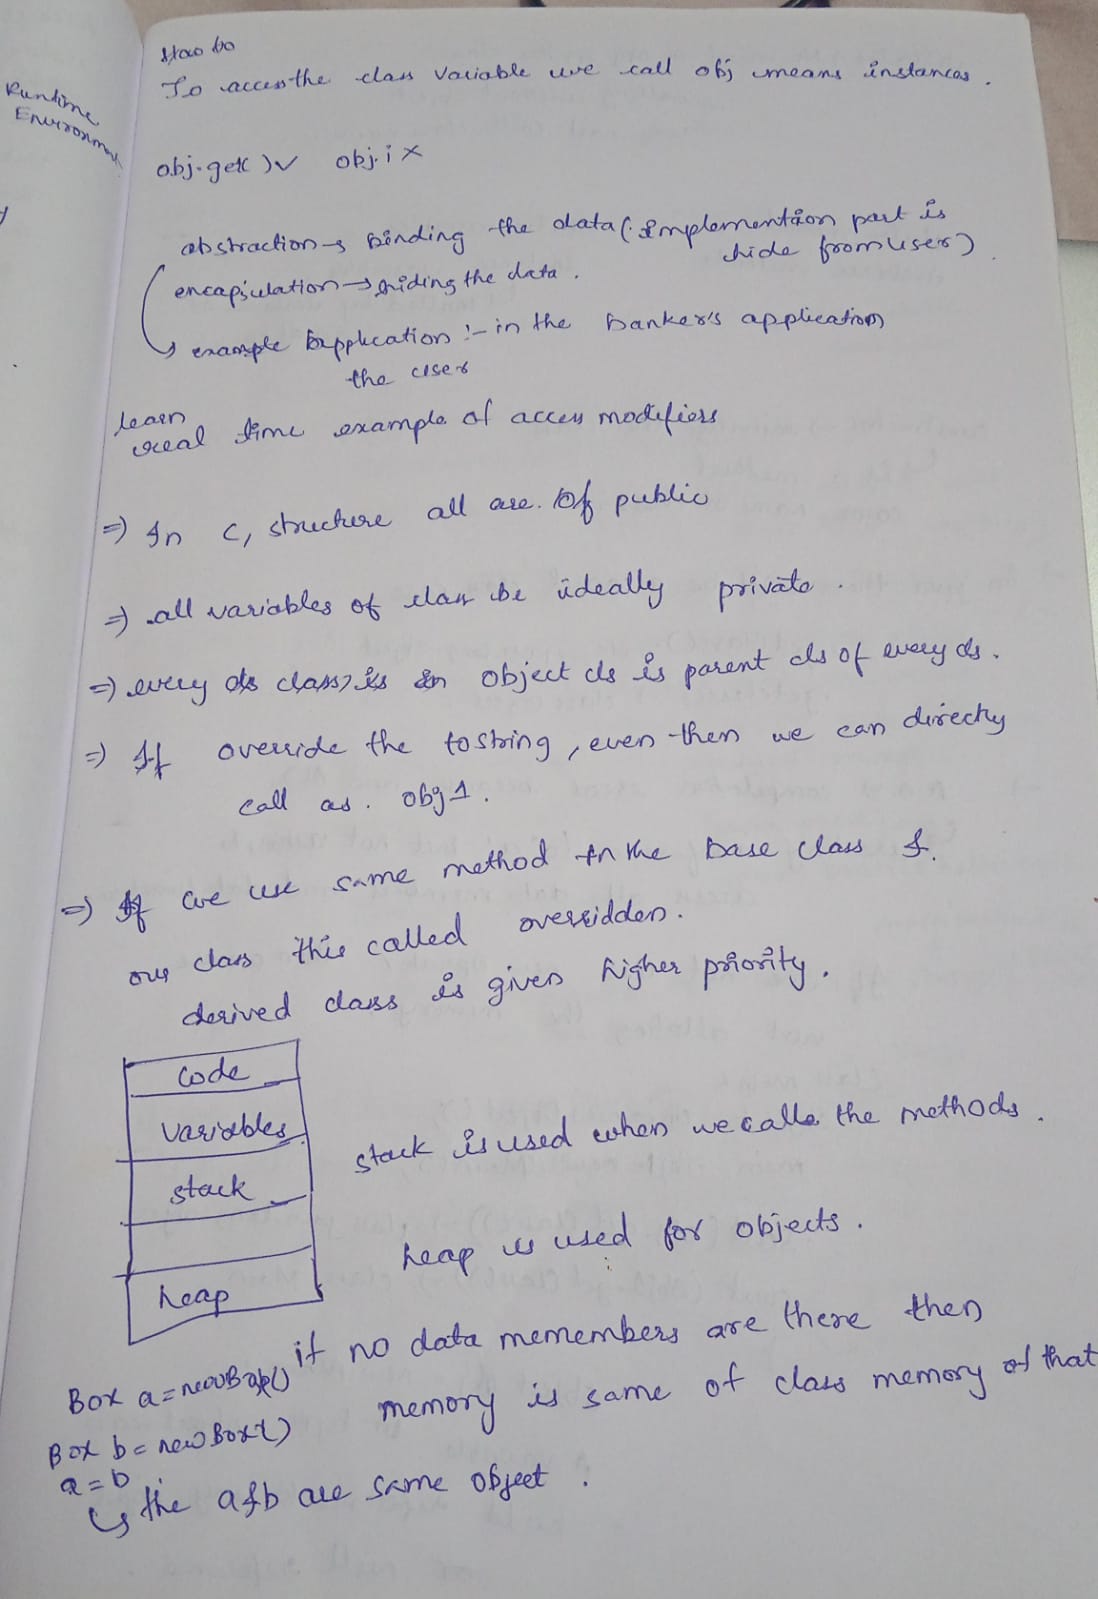 Runtime
Environment
How to
To access the class variable we call obj means instances.
obj.get() ✓ obj.i ×
abstraction → Binding the data (: Implementation part is
hide from user)
encapsulation → hiding the data.
example application :- in the banker's application
the user
learn
real time example of access modifiers
⇒ In C, structure all are of public
⇒ all variables of class be ideally private.
⇒ every class is in object cls is parent cls of every cls.
⇒ If override the tostring, even then we can directly
call as. obj1.
⇒ If we use same method in the base class &
our class this called overridden.
derived class is given higher priority.
code
variables
stack
stack is used when we calls the methods.
heap is used for objects.
heap
if no data memembers are there then
memory is same of class memory of that
Box a = new Box()
Box b = new Box()
a = b
↳ the a & b are same object.